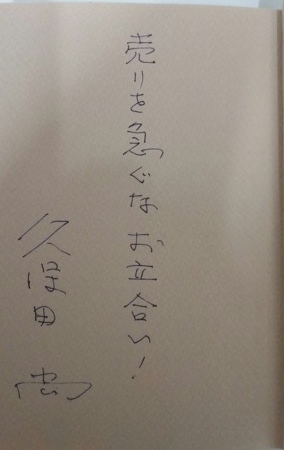 売りを急ぐな お立合い!
久保田